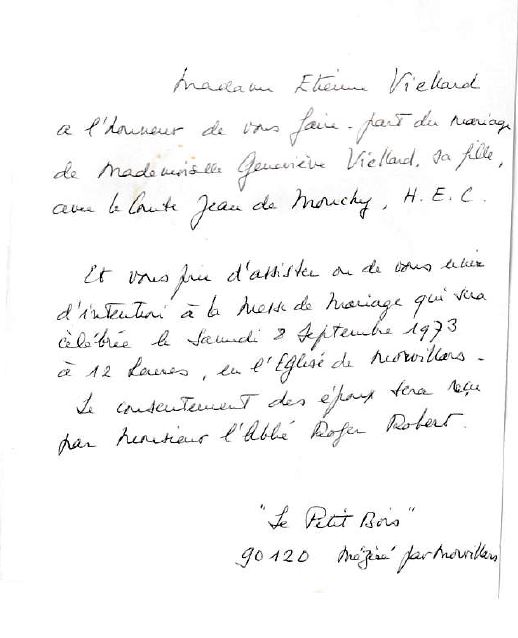 Madame Etienne Viellard
a l'honneur de vous faire-part du mariage
de Mademoiselle Geneviève Viellard, sa fille,
avec le Comte Jean de Mouchy, H.E.C.
Et vous prie d'assister ou de vous unir
d'intention à la Messe de Mariage qui sera
célébrée le Samedi 8 Septembre 1973
à 12 heures, en l'Eglise de Morvillars.
Le consentement des époux sera reçu
par Monsieur l'Abbé Roger Robert.
"Le Petit Bois"
90120 Méziré par Morvillars